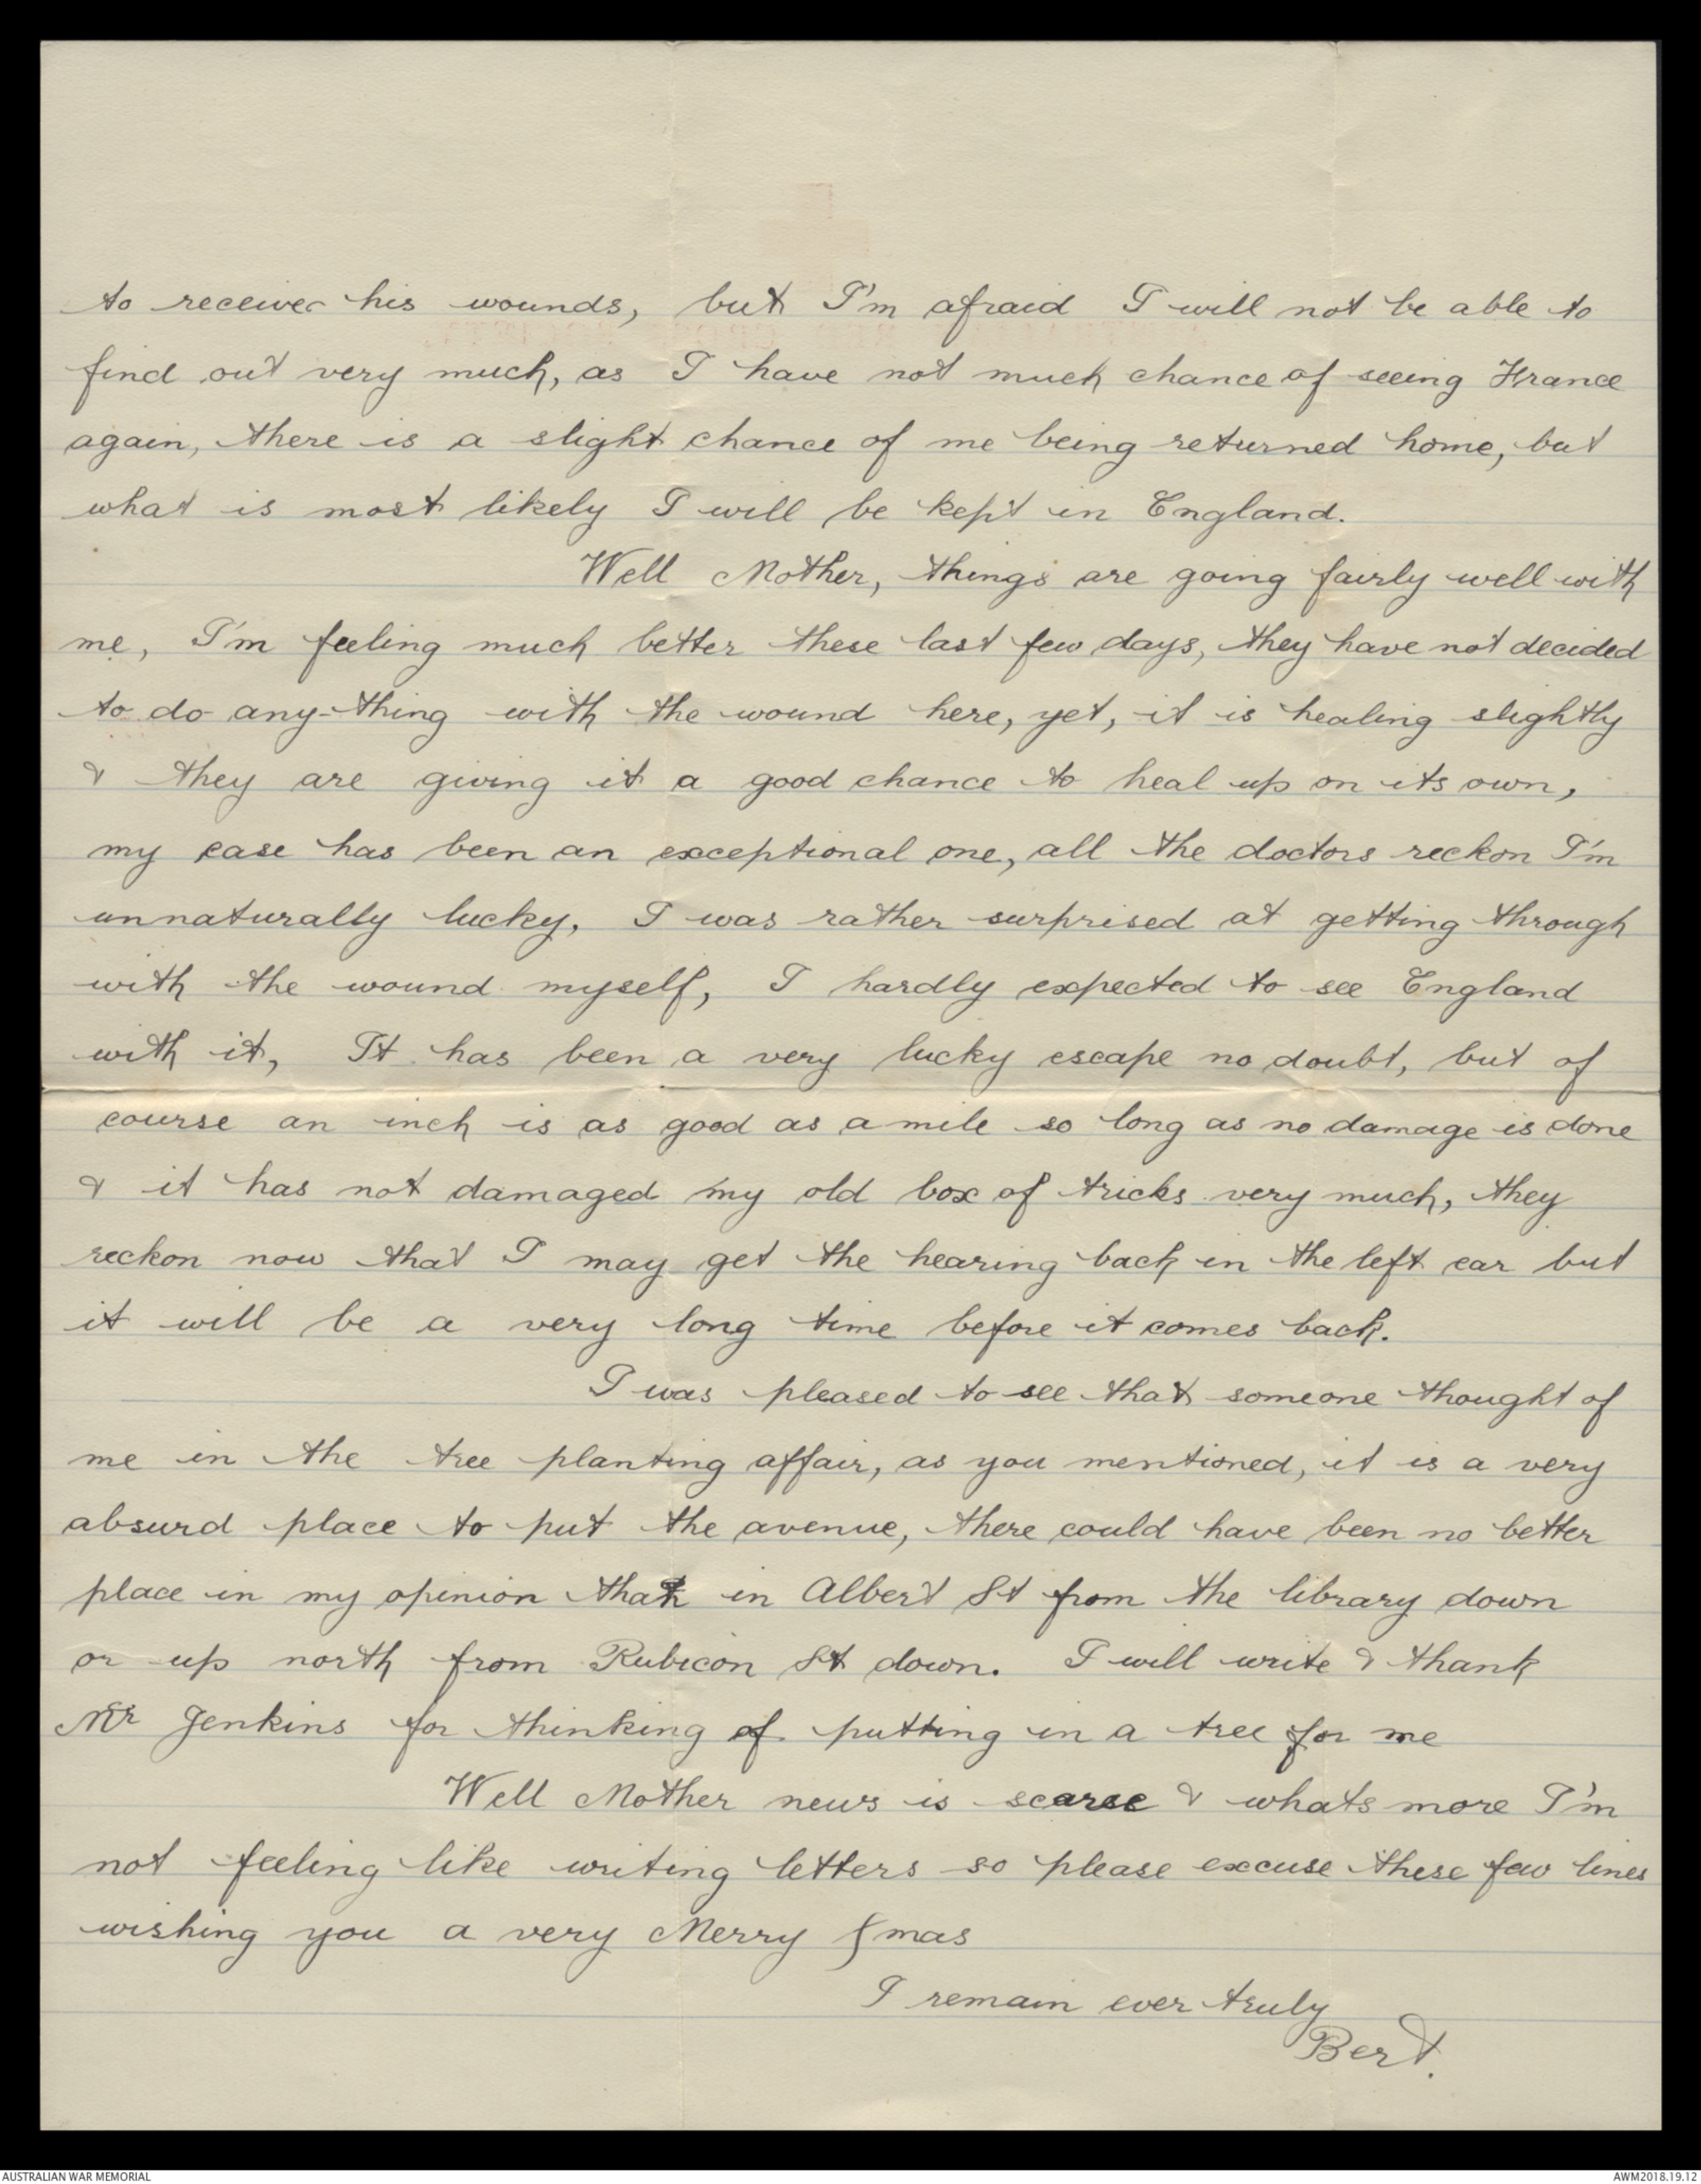 to receive his wounds, but I'm afraid I will not be able to
find out very much, as I have not much chance of seeing France
again, there is a slight chance of me being returned home, but
what is most likely I will be kept in England.
Well Mother, things are going fairly well with
me, I'm feeling much better these last few days, they have not decided
to do any-thing with the wound here, yet, it is healing slightly
& they are giving it a good chance to heal up on its own,
my case has been an exceptional one, all the doctors reckon I'm
unnaturally lucky, I was rather surprised at getting through
with the wound myself, I hardly expected to see England
with it, It has been a very lucky escape no doubt, but of
course an inch is as good as a mile so long as no damage is done
& it has not damaged my old box of tricks very much, they
reckon now that I may get the hearing back in the left ear but
it will be a very long time before it comes back.
I was pleased to see that someone thought of
me in the tree planting affair, as you mentioned, it is a very
absurd place to put the avenue, there could have been no better
place in my opinion than in Albert St from the library down
or up north from Rubicon St down. I will write & thank
Mr Jenkins for thinking of putting in a tree for me
Well Mother news is scarce & whats more I'm
not feeling like writing letters so please excuse these few lines
wishing you a very Merry Xmas
I remain ever truly
Bert.
AUSTRALIAN WAR MEMORIAL AWM2018.19.12